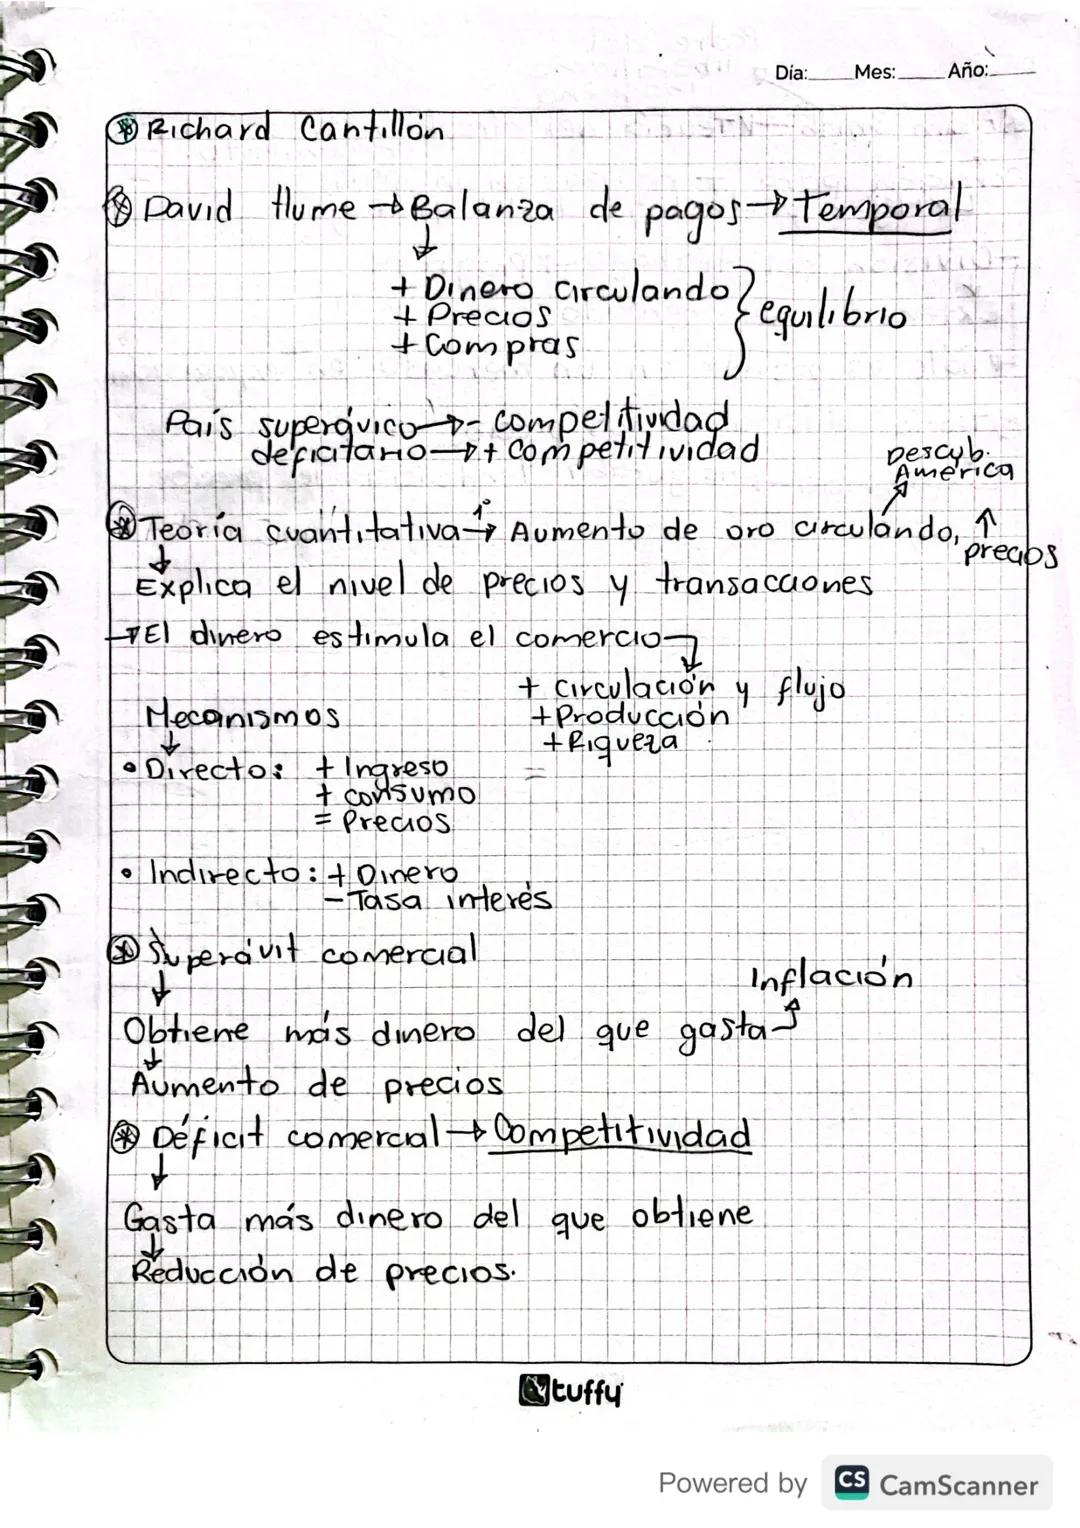 Día:____ Mes:____ Año:____
⊛ Richard Cantillón
⊛ David Hume → Balanza de pagos → Temporal
↓
+ Dinero circulando
+ Precios } equilibrio
+ Compras
País superávico → - competitividad
deficitario → + competitividad
Descub.
América
⊛ Teoría cuantitativa → Aumento de oro circulando, ↑
precios
↓
Explica el nivel de precios y transacciones
→ El dinero estimula el comercio
↓
+ circulación y flujo
Mecanismos +Producción
+Riqueza
↓
• Directo: + Ingreso =
+ consumo
= Precios
• Indirecto: + Dinero
- Tasa interés
⊛ Superávit comercial
↓ Inflación
Obtiene más dinero del que gasta ↑
↓
Aumento de precios
⊛ Déficit comercial → Competitividad
↓
Gasta más dinero del que obtiene
↓
Reducción de precios.
tuffy
Powered by CS CamScanner